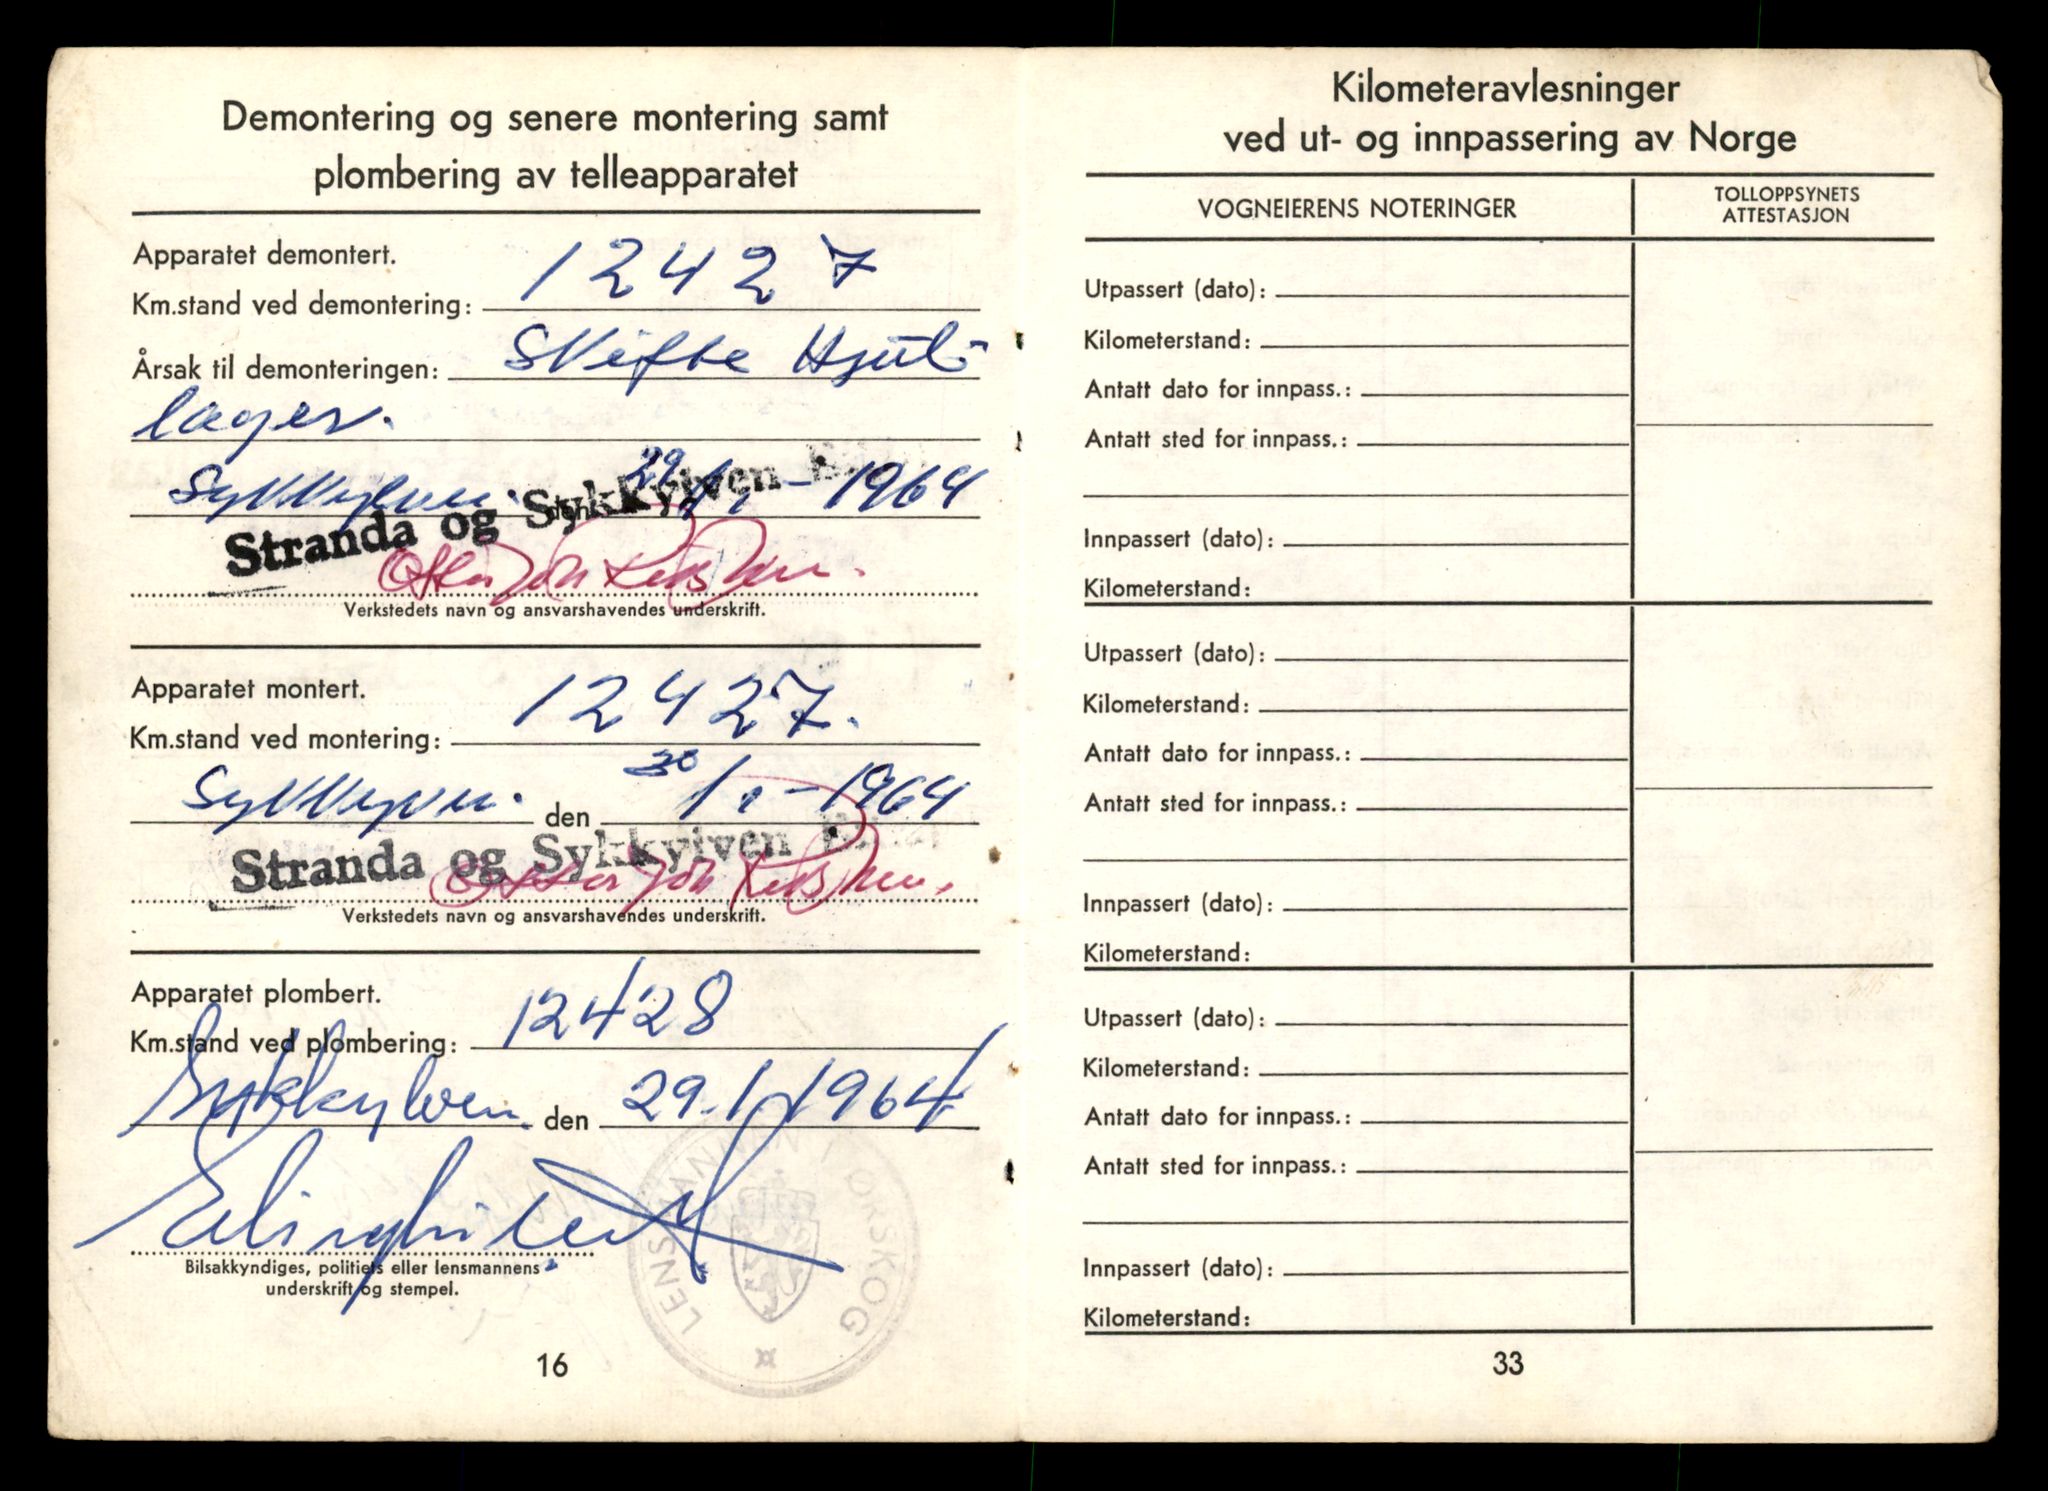 Demontering og senere montering samt
plombering av telleapparatet
Apparatet demontert.
Km.stand ved demontering: 12427
Årsak til demonteringen: Skifte Hjul-
lager.
Sykkylven. den 29/1 - 1964
Stranda og Sykkylven
Verkstedets navn og ansvarshavendes underskrift.
Apparatet montert.
Km.stand ved montering: 12427.
Sykkylven. den 30/1 - 1964
Stranda og Sykkylven
Verkstedets navn og ansvarshavendes underskrift.
Apparatet plombert.
Km.stand ved plombering: 12428
Sykkylven den 29.1.1964
LENSMANNEN I ØRSKOG
Bilsakkyndiges, politiets eller lensmannens
underskrift og stempel.
16
Kilometeravlesninger
ved ut- og innpassering av Norge
VOGNEIERENS NOTERINGER
TOLLOPPSYNETS
ATTESTASJON
Utpassert (dato):
Kilometerstand:
Antatt dato for innpass.:
Antatt sted for innpass.:
Innpassert (dato):
Kilometerstand:
Utpassert (dato):
Kilometerstand:
Antatt dato for innpass.:
Antatt sted for innpass.:
Innpassert (dato):
Kilometerstand:
Utpassert (dato):
Kilometerstand:
Antatt dato for innpass.:
Antatt sted for innpass.:
Innpassert (dato):
Kilometerstand:
33